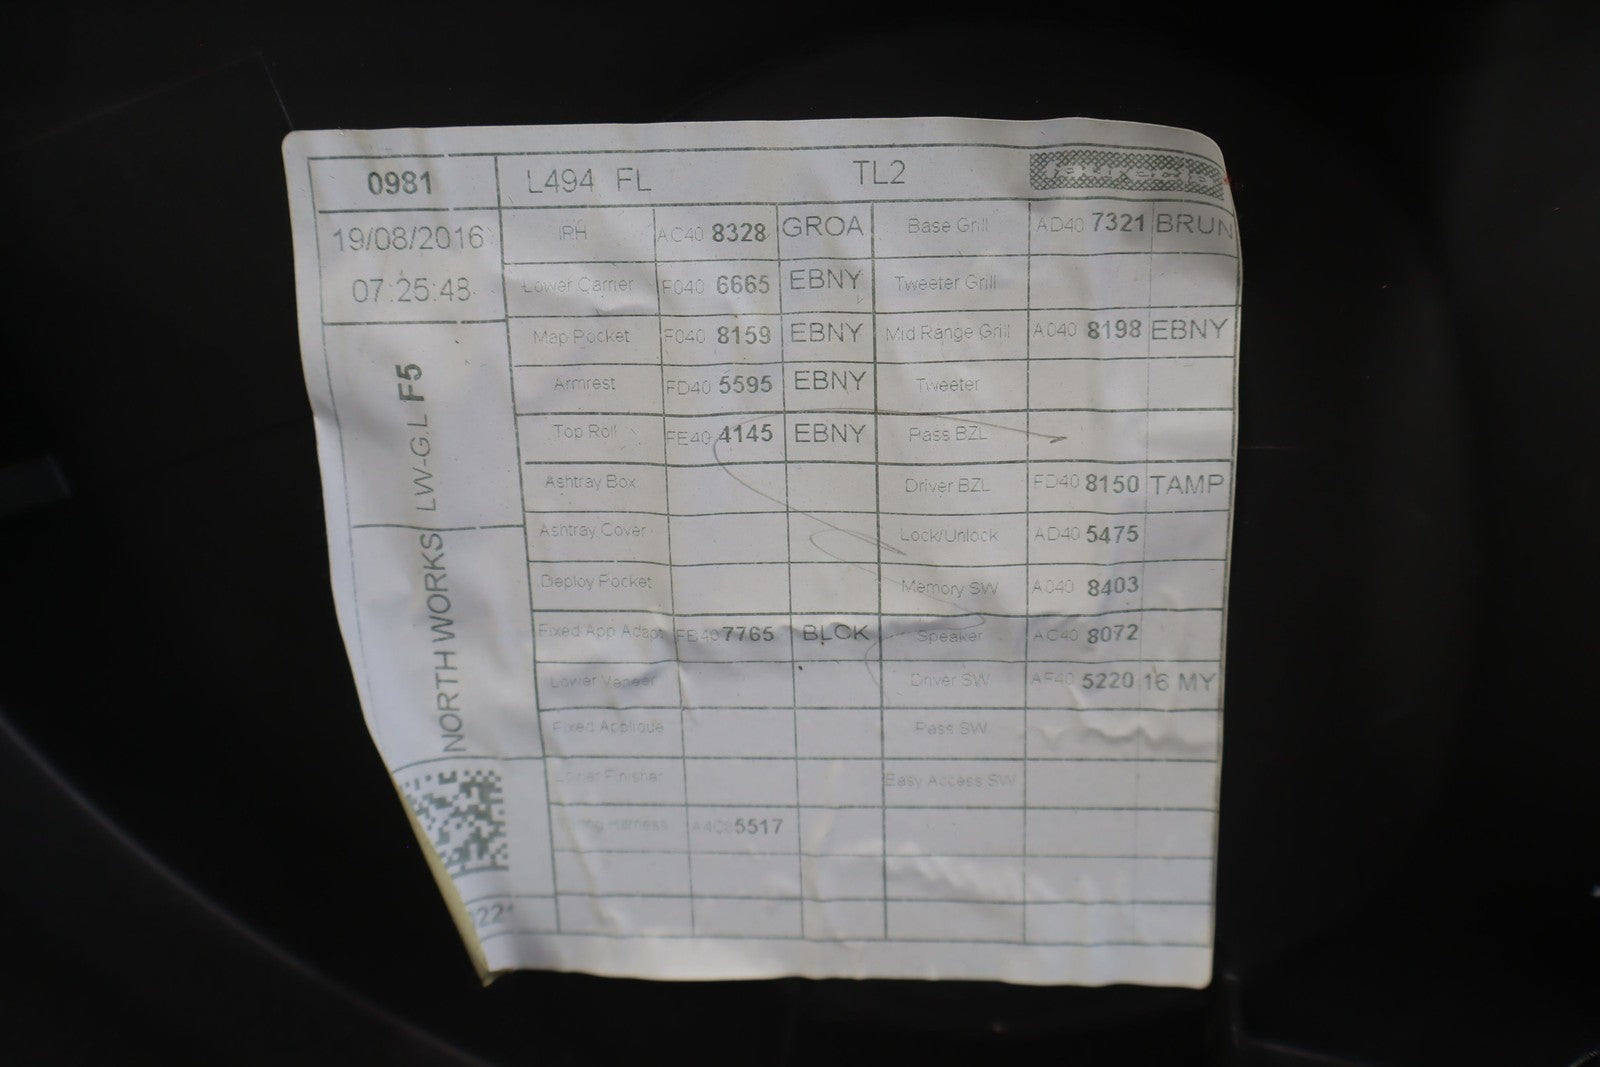 0981 L494 FL TL2
19/08/2016
07:25:48
LW-G.L F5
NORTH WORKS
IRH AC40 8328 GROA Base Grill AD40 7321 BRUN
Lower Carrier F040 6665 EBNY Tweeter Grill
Map Pocket F040 8159 EBNY Mid Range Grill A040 8198 EBNY
Armrest FD40 5595 EBNY Tweeter
Top Roll FE40 4145 EBNY Pass BZL
Ashtray Box Driver BZL FD40 8150 TAMP
Ashtray Cover Lock/Unlock AD40 5475
Deploy Pocket Memory SW A040 8403
Fixed App Adapt FB40 7765 BLCK Speaker AC40 8072
Lower Veneer Driver SW AF40 5220 16 MY
Fixed Applique Pass SW
Lower Finisher Easy Access SW
Harness 5517